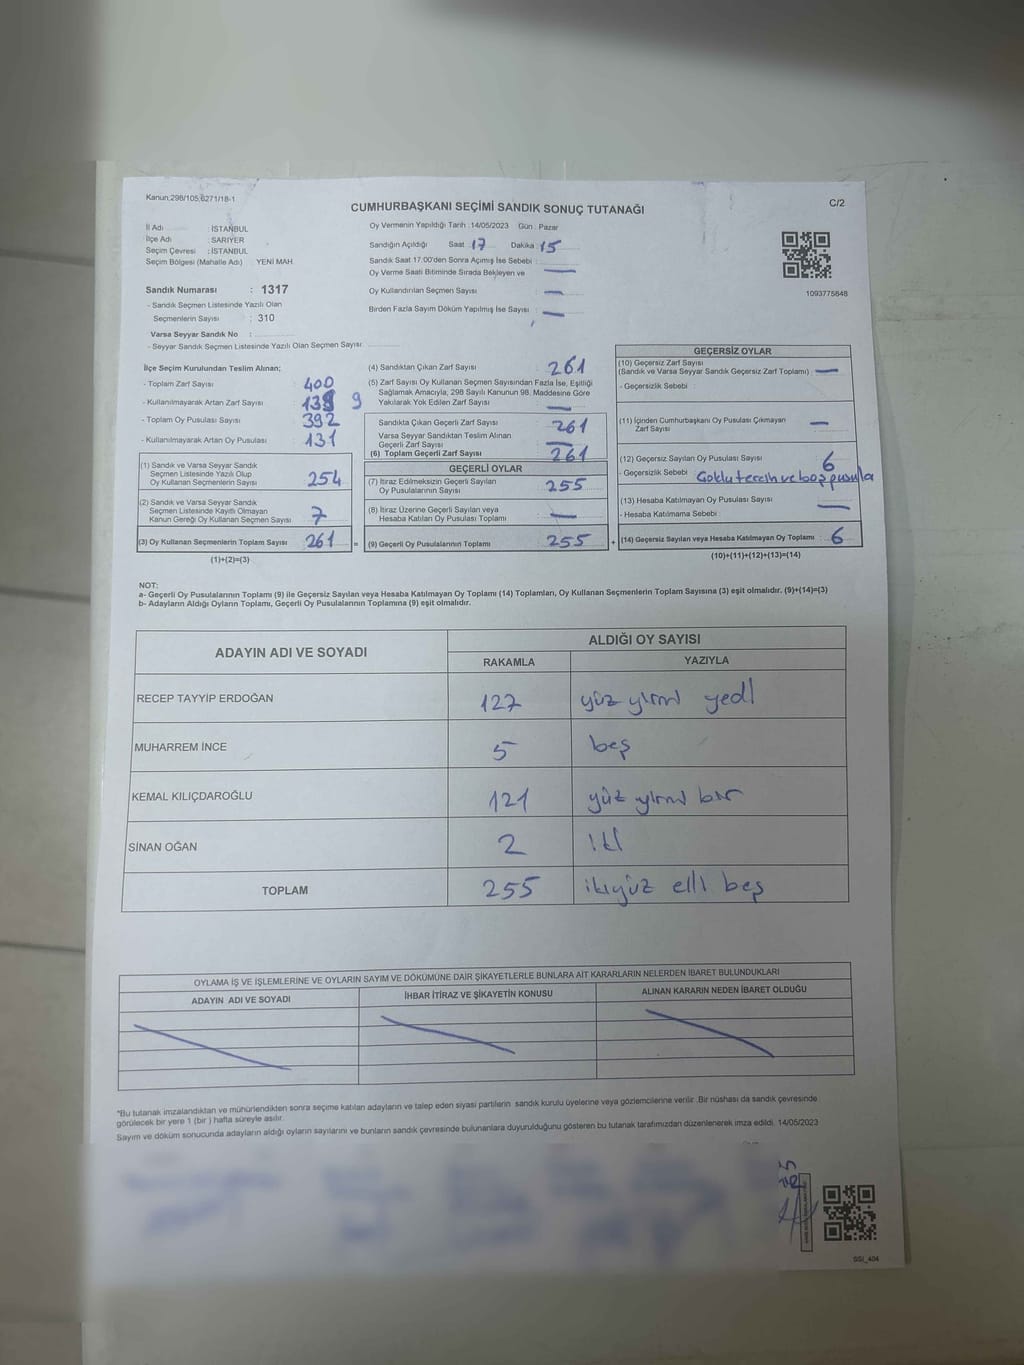 Kanun;298/105,6271/18-1
C/2
CUMHURBAŞKANI SEÇİMİ SANDIK SONUÇ TUTANAĞI
İl Adı : İSTANBUL
İlçe Adı : SARIYER
Seçim Çevresi : İSTANBUL
Seçim Bölgesi (Mahalle Adı) YENİ MAH.
Sandık Numarası : 1317
- Sandık Seçmen Listesinde Yazılı Olan
Seçmenlerin Sayısı : 310
Varsa Seyyar Sandık No :
- Seyyar Sandık Seçmen Listesinde Yazılı Olan Seçmen Sayısı:
Oy Vermenin Yapıldığı Tarih :14/05/2023 Gün : Pazar
Sandığın Açıldığı Saat 17 Dakika 15
Sandık Saat 17.00'den Sonra Açımış İse Sebebi :
Oy Verme Saati Bitiminde Sırada Bekleyen ve —
Oy Kullandırılan Seçmen Sayısı : —
Birden Fazla Sayım Döküm Yapılmış İse Sayısı : —
1093775848
İlçe Seçim Kurulundan Teslim Alınan;
- Toplam Zarf Sayısı 400
- Kullanılmayarak Artan Zarf Sayısı 139 9
- Toplam Oy Pusulası Sayısı 392
- Kullanılmayarak Artan Oy Pusulası 131
(1) Sandık ve Varsa Seyyar Sandık
Seçmen Listesinde Yazılı Olup
Oy Kullanan Seçmenlerin Sayısı 254
(2) Sandık ve Varsa Seyyar Sandık
Seçmen Listesinde Kayıtlı Olmayan
Kanun Gereği Oy Kullanan Seçmen Sayısı 7
(3) Oy Kullanan Seçmenlerin Toplam Sayısı 261 =
(1)+(2)=(3)
(4) Sandıktan Çıkan Zarf Sayısı 261
(5) Zarf Sayısı Oy Kullanan Seçmen Sayısından Fazla İse, Eşitliği
Sağlamak Amacıyla, 298 Sayılı Kanunun 98. Maddesine Göre
Yakılarak Yok Edilen Zarf Sayısı —
Sandıkta Çıkan Geçerli Zarf Sayısı 261
Varsa Seyyar Sandıktan Teslim Alınan
Geçerli Zarf Sayısı —
(6) Toplam Geçerli Zarf Sayısı 261
GEÇERLİ OYLAR
(7) İtiraz Edilmeksizin Geçerli Sayılan
Oy Pusulalarının Sayısı 255
(8) İtiraz Üzerine Geçerli Sayılan veya
Hesaba Katılan Oy Pusulası Toplamı —
(9) Geçerli Oy Pusulalarının Toplamı 255 +
GEÇERSİZ OYLAR
(10) Geçersiz Zarf Sayısı
(Sandık ve Varsa Seyyar Sandık Geçersiz Zarf Toplamı) —
- Geçersizlik Sebebi :
(11) İçinden Cumhurbaşkanı Oy Pusulası Çıkmayan
Zarf Sayısı —
(12) Geçersiz Sayılan Oy Pusulası Sayısı 6
- Geçersizlik Sebebi Çoklu tercih ve boş pusula
(13) Hesaba Katılmayan Oy Pusulası Sayısı —
- Hesaba Katılmama Sebebi :
(14) Geçersiz Sayılan veya Hesaba Katılmayan Oy Toplamı : 6
(10)+(11)+(12)+(13)=(14)
NOT:
a- Geçerli Oy Pusulalarının Toplamı (9) ile Geçersiz Sayılan veya Hesaba Katılmayan Oy Toplamı (14) Toplamları, Oy Kullanan Seçmenlerin Toplam Sayısına (3) eşit olmalıdır. (9)+(14)=(3)
b- Adayların Aldığı Oyların Toplamı, Geçerli Oy Pusulalarının Toplamına (9) eşit olmalıdır.
ADAYIN ADI VE SOYADI ALDIĞI OY SAYISI
RAKAMLA YAZIYLA
RECEP TAYYİP ERDOĞAN 127 yüz yirmi yedi
MUHARREM İNCE 5 beş
KEMAL KILIÇDAROĞLU 121 yüz yirmi bir
SİNAN OĞAN 2 iki
TOPLAM 255 ikiyüz elli beş
OYLAMA İŞ VE İŞLEMLERİNE VE OYLARIN SAYIM VE DÖKÜMÜNE DAİR ŞİKAYETLERLE BUNLARA AİT KARARLARIN NELERDEN İBARET BULUNDUKLARI
ADAYIN ADI VE SOYADI İHBAR İTİRAZ VE ŞİKAYETİN KONUSU ALINAN KARARIN NEDEN İBARET OLDUĞU
*Bu tutanak imzalandıktan ve mühürlendikten sonra seçime katılan adayların ve talep eden siyasi partilerin sandık kurulu üyelerine veya gözlemcilerine verilir .Bir nüshası da sandık çevresinde
görülecek bir yere 1 (bir ) hafta süreyle asılır.
Sayım ve döküm sonucunda adayların aldığı oyların sayılarını ve bunların sandık çevresinde bulunanlara duyurulduğunu gösteren bu tutanak tarafımızdan düzenlenerek imza edildi. 14/05/2023
SSI_404